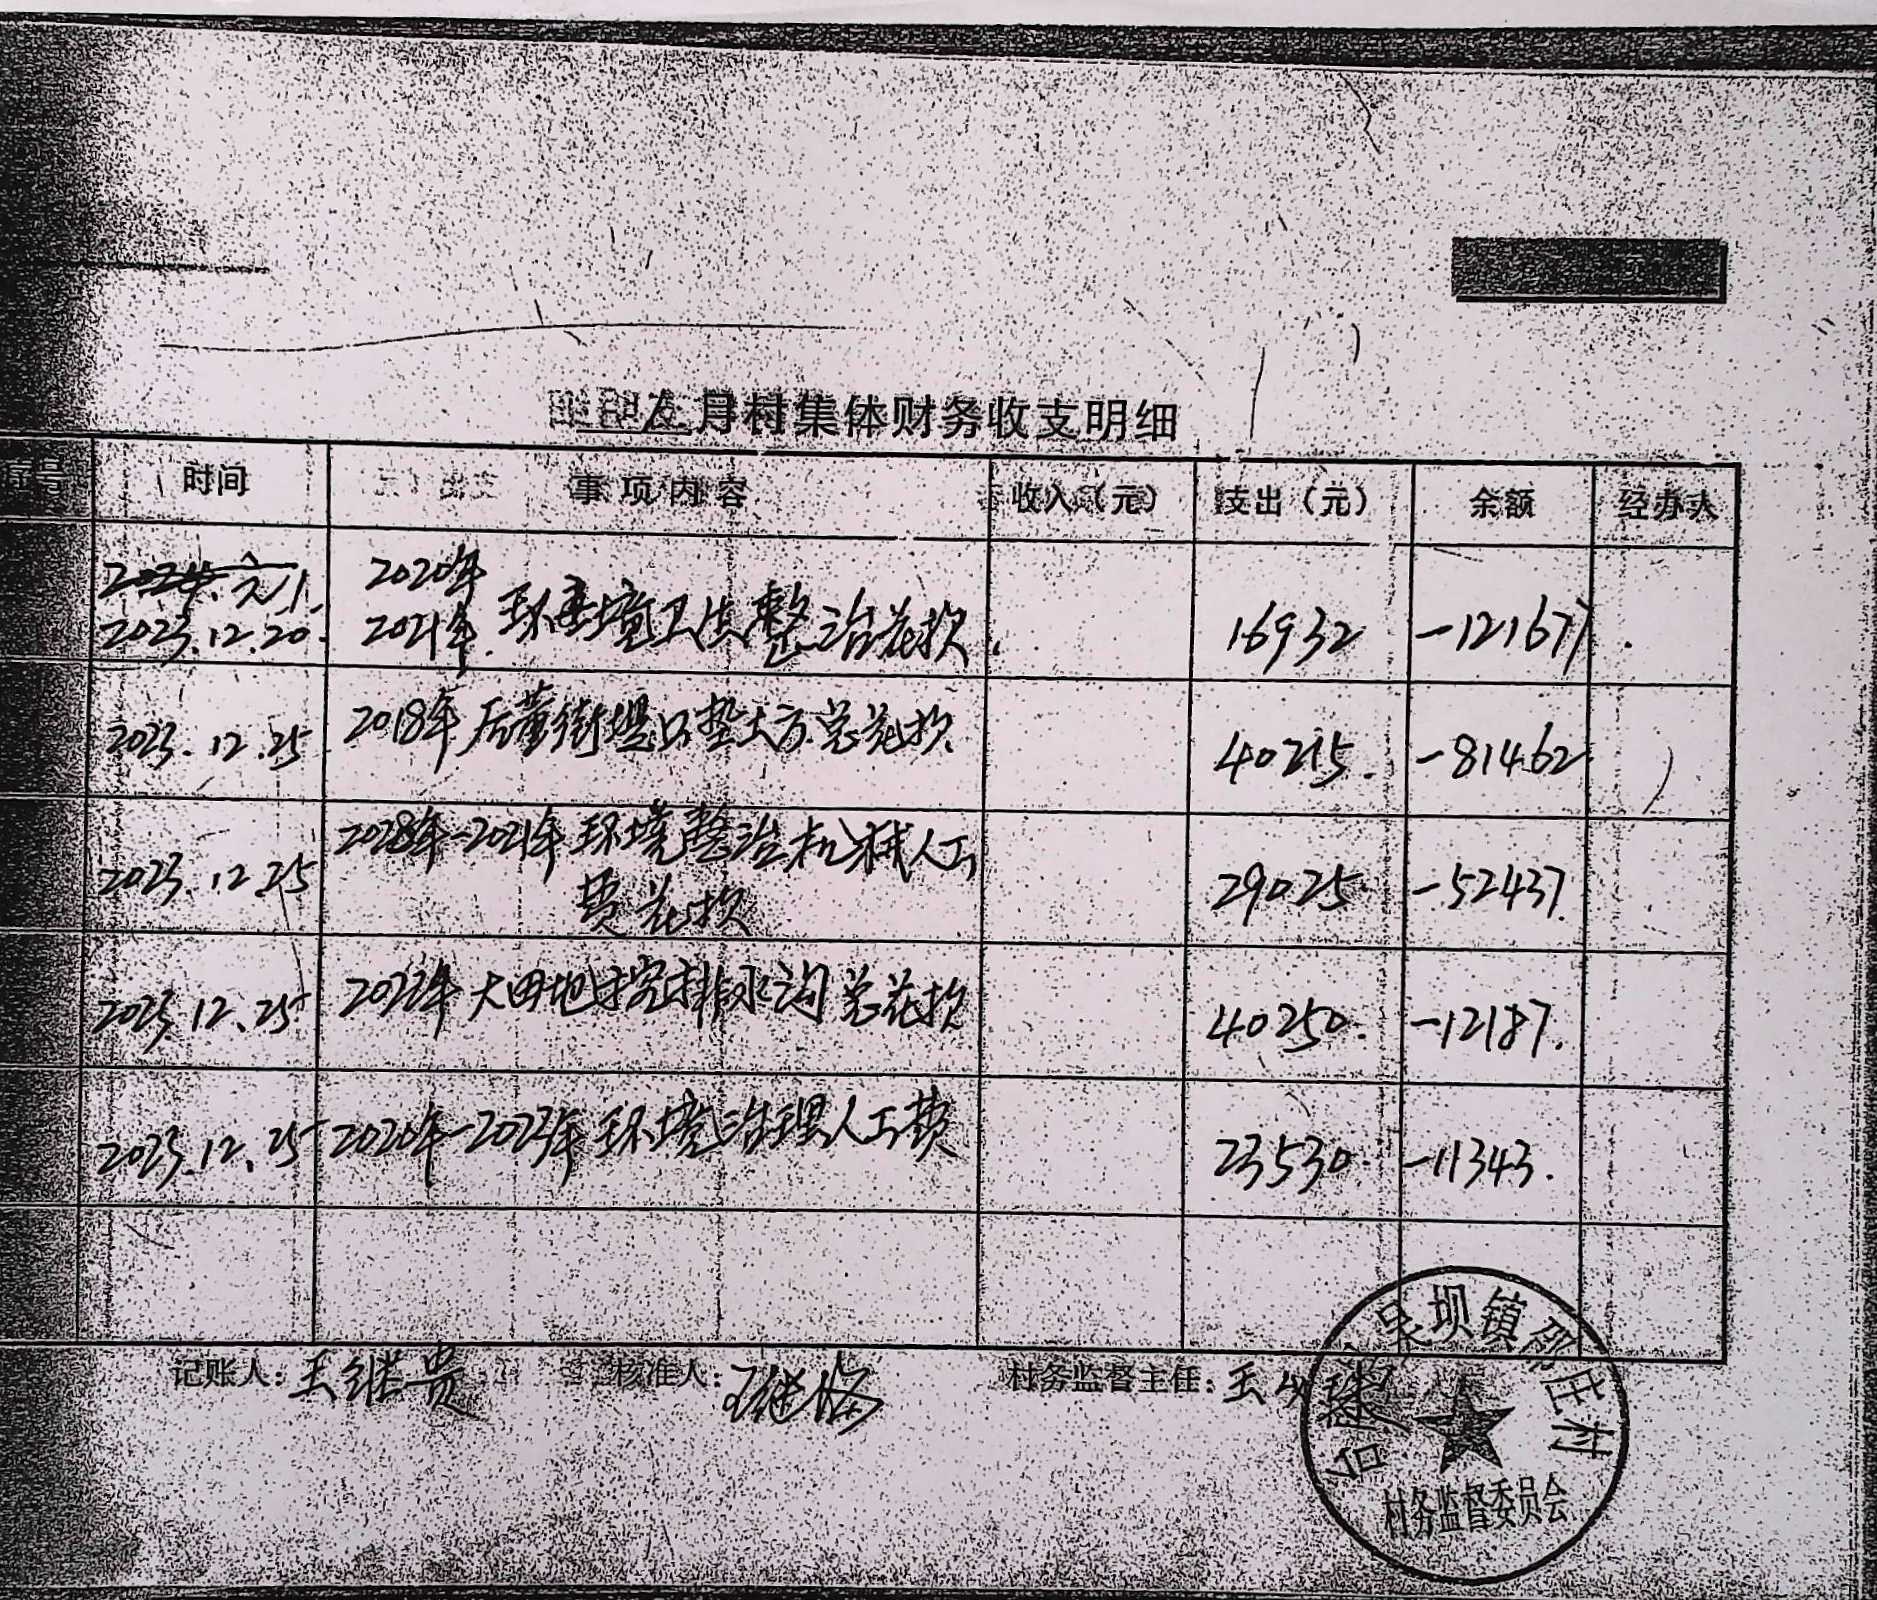 月村集体财务收支明细
序号 时间 事项内容 收入（元） 支出（元） 余额 经办人
2020年
2023.12.20. 2021年 环境卫生整治花款. 16932 -121677
2023.12.25 2018年后董街堤口垫土方总花款 40215. -81462
2023.12.25 2028年-2021年环境整治机械人工
费花款 29025 -52437.
2023.12.25 2022年大田地挖排水沟总花款 40250. -12187.
2023.12.25 2020年-2023年环境治理人工费 23530. -11343.
记账人：王继贵 核准人： 村务监督主任：王
吴坝镇邵庄村
村务监督委员会